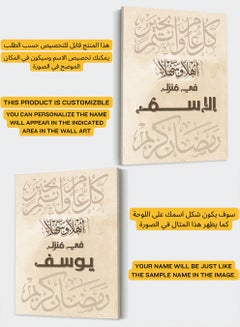 هذا المنتج قابل للتخصيص حسب الطلب
يمكنك تخصيص الاسم وسيكون في المكان
الموضح في الصورة
THIS PRODUCT IS CUSTOMIZBLE
YOU CAN PERSONALIZE THE NAME
WILL APPEAR IN THE INDICATED
AREA IN THE WALL ART
كل عام وأنتم بخير
أهلا وسهلا
في منزل
الإسم
رمضان كريم
كل عام وأنتم بخير
أهلا وسهلا
في منزل
يوسف
رمضان كريم
سوف يكون شكل اسمك على اللوحة
كما يظهر هذا المثال في الصورة
YOUR NAME WILL BE JUST LIKE
THE SAMPLE NAME IN THE IMAGE.